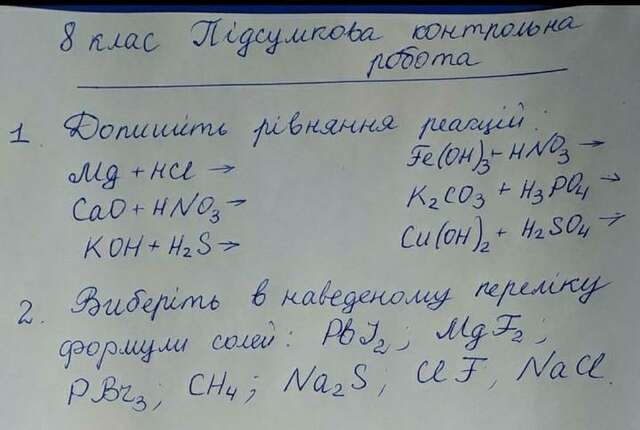 8 клас Підсумкова контрольна
робота
1. Допишіть рівняння реакцій:
Mg + HCl → Fe(OH)₃ + HNO₃ →
CaO + HNO₃ → K₂CO₃ + H₃PO₄ →
KOH + H₂S → Cu(OH)₂ + H₂SO₄ →
2. Виберіть в наведеному переліку
формули солей: PbI₂; MgF₂;
PBr₃; CH₄; Na₂S; ClF, NaCl.